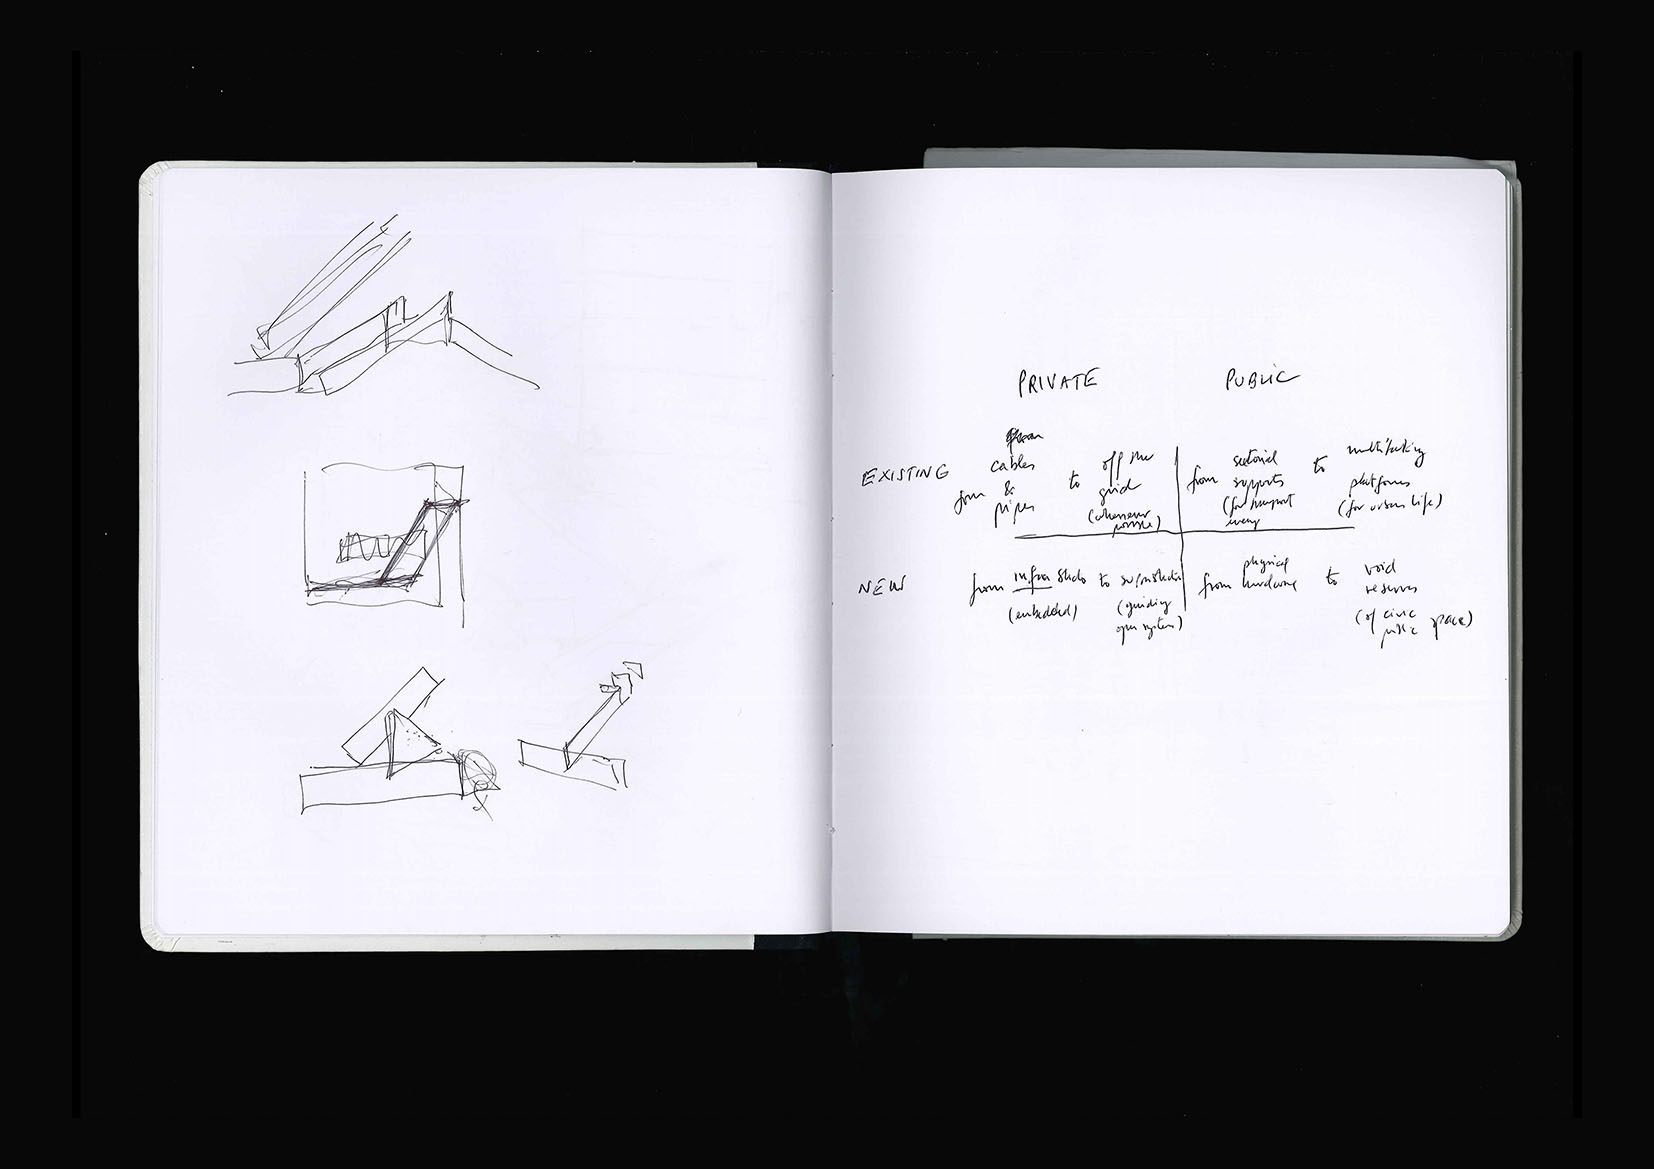 PRIVATE PUBLIC
EXISTING from cables & pipes to off the grid
from sectorial supports (for transport energy to multitasking platforms (for urban life)
NEW from infra to
(embedded) (guiding open system)
from physical hardware to void reserves (of civic public space)